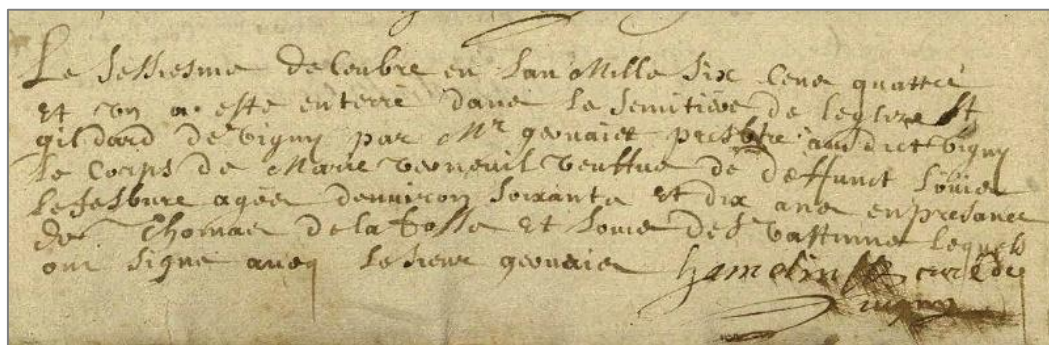 Le sessiesme decenbre en lan Mille six cens quattre
et vn a esté enterré dans le semitière de leglise St
gildard de vigny par Mr geruaiet presbtre audict vigny
le corps de Marie verneuil veuffue de deffunct Louis
lefesbure agée denuiron soixante et dix ans en presance
de Thomas de la fosse et Louis des vattinne lequels
ont signé aueq le sieur geruaies hamelin curé de
vigny